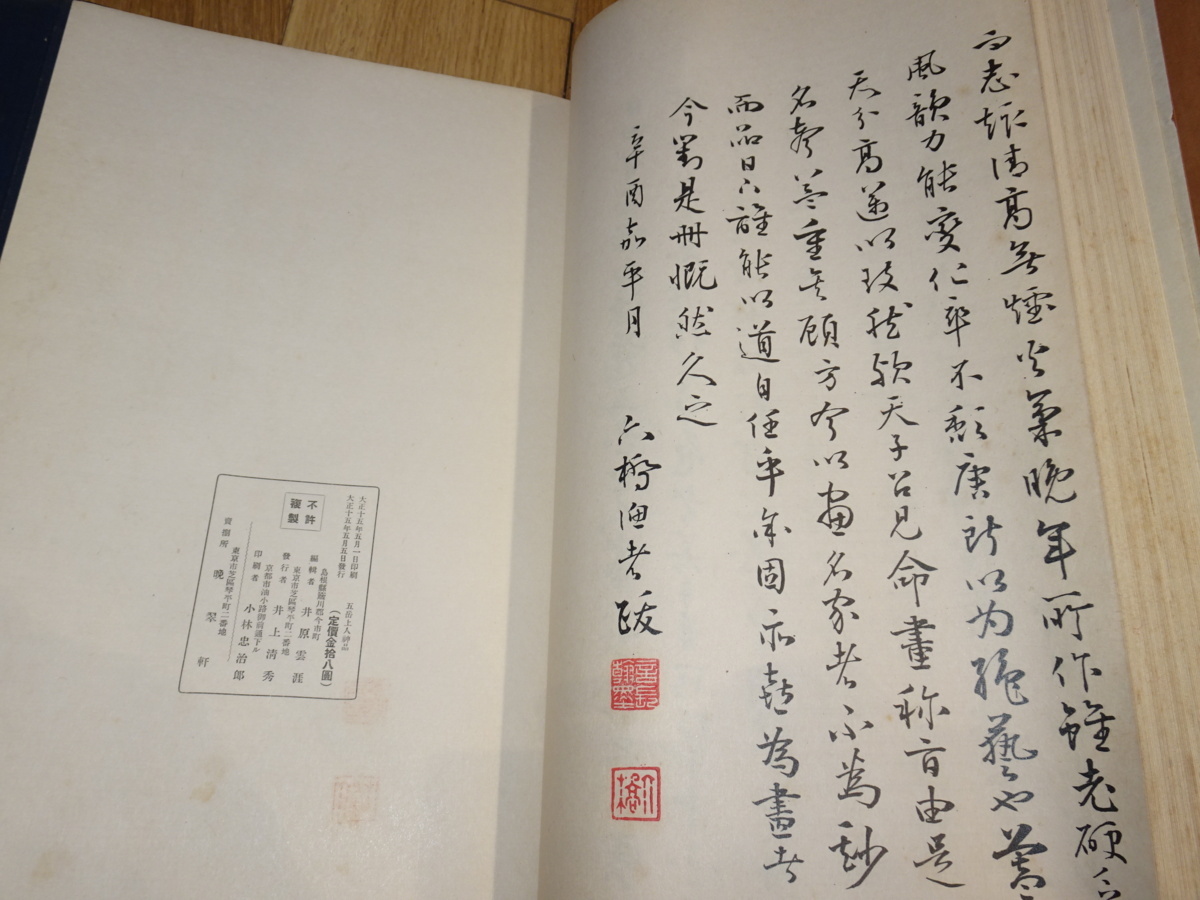 而志趣清高無煙火氣晩年所作雖老硬
風韻力能變化率不頽唐所以为絶藝也蓋
天分高邁以致然歟天子召見命畫称旨由是
名声益重矣顧方今以画名家者不為尠
而品日下誰能以道自任乎
今對是冊慨然久之
辛酉嘉平月
六橋漁者跋
大正十五年五月一日印刷
大正十五年五月五日發行
不許
複製
五岳上人神品
(定價金拾八圓)
島根縣簸川郡今市町
編輯者 井原雲涯
東京市芝區琴平町二番地
發行者 井上清秀
京都市油小路御前通下ル
印刷者 小林忠治郎
東京市芝區琴平町二番地
賣捌所 晩翠軒